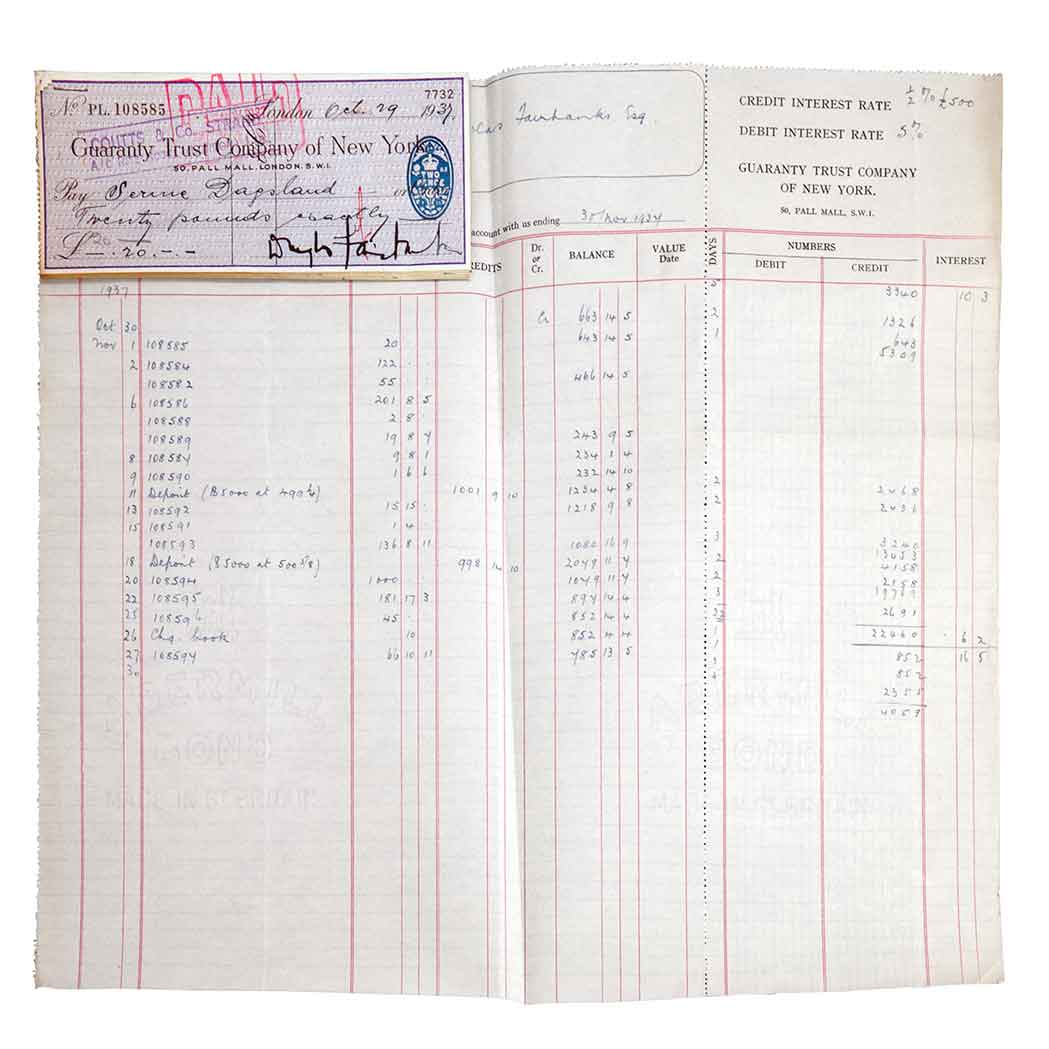 7732
No PL.108585 London Oct. 29 1937
PAID
COUTTS & CO. STRAND
Guaranty Trust Company of New York
50, PALL MALL, LONDON, S.W.1.
Pay Dagsland
Twenty pounds exactly
£ 20. - -
Fairbanks Esq.
account with us ending 30 Nov 1937
CREDIT INTEREST RATE ½ % £500
DEBIT INTEREST RATE 5%
GUARANTY TRUST COMPANY
OF NEW YORK.
50, PALL MALL, S.W.1.
Dr. or Cr. BALANCE VALUE Date DAYS NUMBERS DEBIT CREDIT INTEREST
1937 3340 10 3
Oct 30 Cr 663 14 5 2 1326
Nov 1 108585 20 643 14 5 1 643
5309
2 108584 122 . .
108582 55 . . 466 14 5
6 108586 201 8 5
108588 2 8 .
108589 19 8 7 243 9 5
8 108587 9 8 1 234 1 4
9 108590 1 6 6 232 14 10
11 Deposit ($5000 at 499¼) 1001 9 10 1234 4 8 2 2468
13 108592 15 15 . 1218 9 8 2 2436
15 108591 1 4 .
108593 136 8 11 1080 16 9 3 3240
13053
18 Deposit ($5000 at 500 5/8) 998 14 10 2079 11 7 2 4158
20 108594 1000 . . 1079 11 7 2 2158
19769
22 108595 181 17 3 897 14 4 3 2691
25 108596 45 . 852 14 4 22460 . 6 2
26 Chq. book 10 852 4 4 1 852 16 5
27 108597 66 10 11 785 13 5 852
30 2355
4059